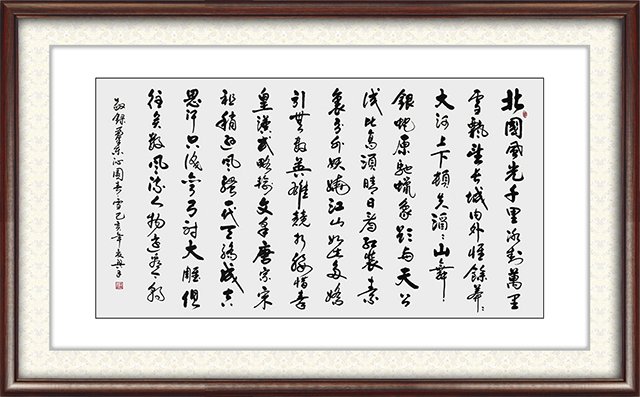 北國風光千里冰封萬里
雪飄望長城內外惟餘莽〻
大河上下頓失滔〻山舞
銀蛇原馳蠟象欲與天公
試比高須晴日看紅裝素
裹分外妖嬈江山如此多嬌
引無數英雄競折腰惜秦
皇漢武略輸文采唐宗宋
祖稍遜風騷一代天驕成吉
思汗只識彎弓射大雕俱
往矣數風流人物還看今朝
敬錄東沁園春雪己亥年